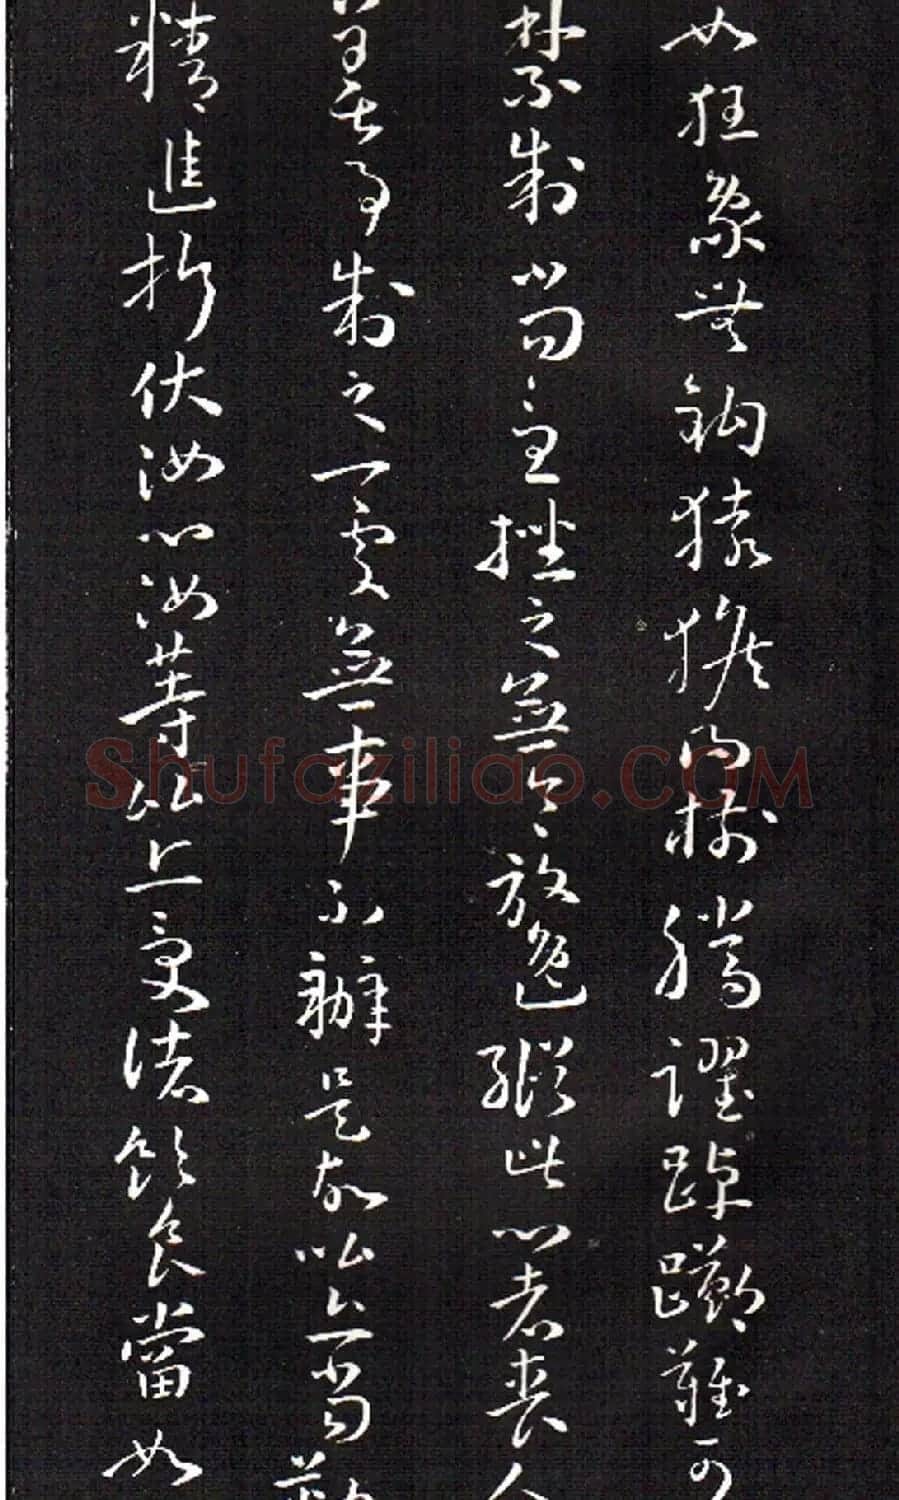 如狂象無鈎猿猴得樹騰躍踔躑難可
禁制當急挫之無令放逸縱此心者喪人
善事制之一處無事不辦是故比丘當勤
精進折伏汝心汝等比丘受諸飲食當如
Shufaziliao.COM